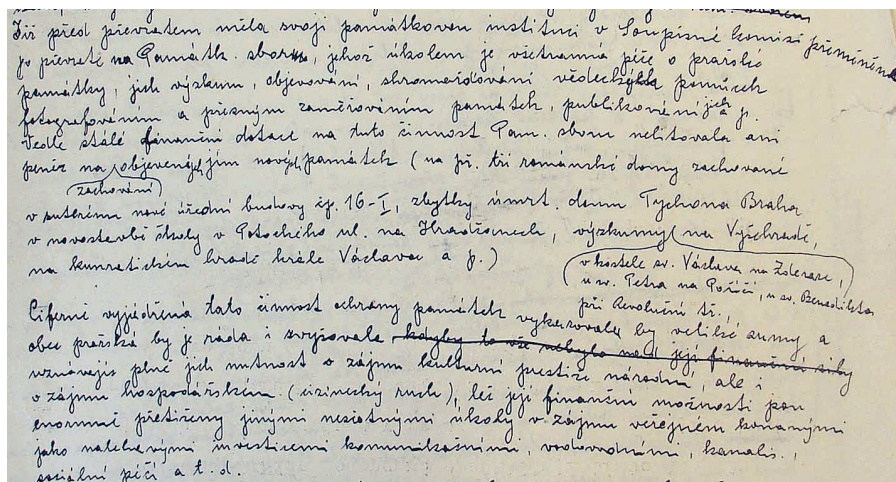 Již před převratem měla svoji památkovou instituci v Soupisné komisi přeměněné
po převratě na Památk. sbor, jehož úkolem je všestranná péče o pražské
památky, jich výzkum, objevování, shromažďování vědeckých pomůcek
fotografováním a přesným zaměřováním památek, publikování jich a p.
Vedle stálé finanční dotace na tuto činnost Pam. sboru nelitovala ani
peněz na zachování objevených jím nových památek (na př. tři románské domy zachované
v suterénu nové úřední budovy čp. 16-I, zbytky úmrt. domu Tychona Braha
v novostavbě školy v Parléřově ul. na Hradčanech, výzkumy na Vyšehradě,
v kostele sv. Václava na Zderaze,
u sv. Petra na Poříčí, u sv. Benedikta
při Revoluční tř.,
na kunratickém hradě krále Václava a p.)
Ciferně vyjádřena tato činnost ochrany památek vykazovala by veliké sumy a
obec pražská by je ráda i zvyšovala kdyby to vše nebylo nad její finanční síly
uznávajíc plně jich nutnost v zájmu kulturní prestiže národní, ale i
v zájmu hospodářském (cizinecký ruch), leč její finanční možnosti jsou
enormně přetíženy jinými nesčetnými úkoly v zájmu veřejném konanými
jako naléhavými investicemi komunikačními, vodovodními, kanalis.,
sociální péčí a t. d.